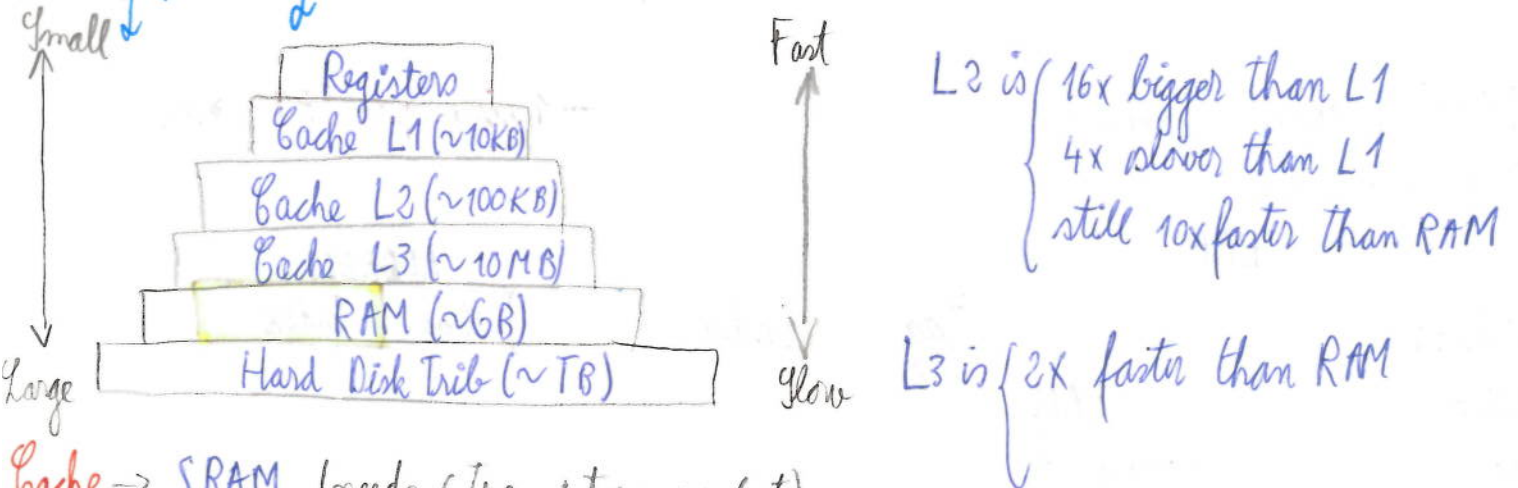 Small
Fast
Registers
Cache L1 (~10KB)
Cache L2 (~100KB)
Cache L3 (~10MB)
RAM (~GB)
Hard Disk Trib (~TB)
Large
Slow
L2 is { 16x bigger than L1
4x slower than L1
still 10x faster than RAM
L3 is { 2x faster than RAM
Cache → SRAM